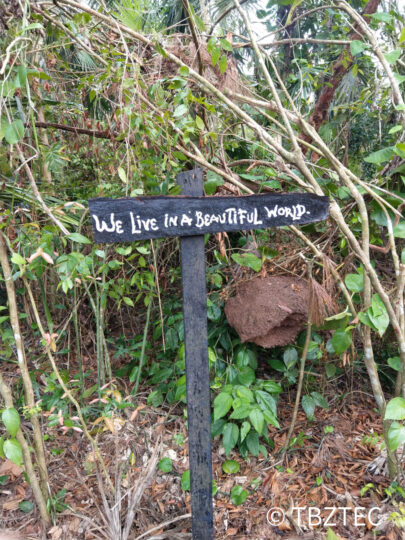 WE LIVE IN A BEAUTIFUL WORLD.
© TBZTEC